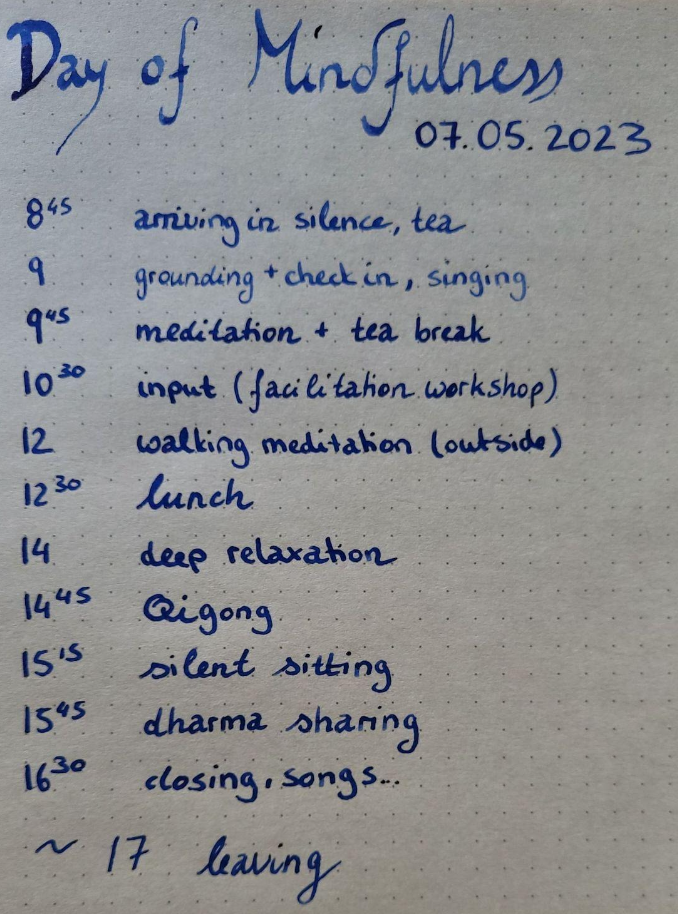 Day of Mindfulness
07.05.2023
8⁴⁵ arriving in silence, tea
9 grounding + check in, singing
9⁴⁵ meditation + tea break
10³⁰ input (facilitation workshop)
12 walking meditation (outside)
12³⁰ lunch
14 deep relaxation
14⁴⁵ Qigong
15¹⁵ silent sitting
15⁴⁵ dharma sharing
16³⁰ closing, songs...
~ 17 leaving